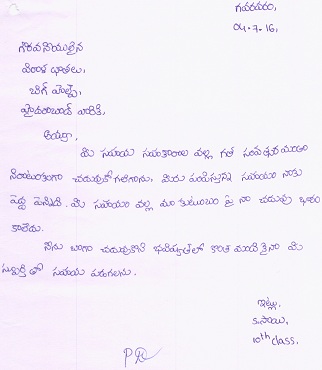 గవరవరం,
04.7.16,
గౌరవనీయులైన
విరాళ దాతలు,
బిగ్ హెల్ప్,
హైదరాబాద్ వారికి,
ఆర్యా,
మీ సహాయ సహకారాల వల్ల గత సంవత్సరమంతా
నిరాటంకంగా చదువుకో గలిగాను, మీరు పంపిస్తున్న సహాయం నాకు
పెద్ద పెన్నిధి. మీ సహాయం వల్ల మా కుటుంబం పై నా చదువు భారం
కాలేదు.
నేను బాగా చదువుకొని భవిష్యత్తులో కొంత మందికైనా మీ
స్ఫూర్తి తో సహాయ పడగలను.
ఇట్లు,
S.సాయి,
10th class.